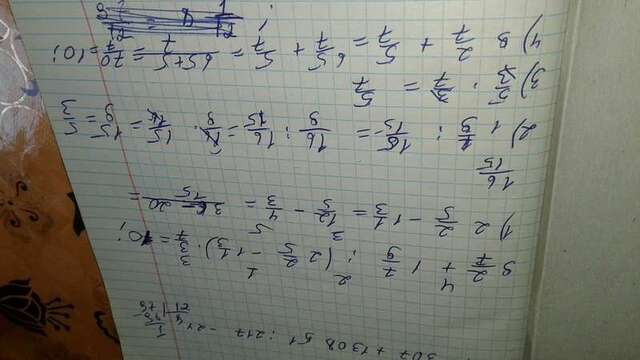 307 + 1308 51 : 217 - 21
9 2/7 + 1 7/9 : (2 2/5 - 1 1/3) · 3/7 = 10;
1) 2 2/5 - 1 1/3 = 12/5 - 4/3 = 36 - 20/15 =
16/15
2) 1 7/9 : 16/15 = 16/9 : 16/15 = 16/9 · 15/16 = 15/9 = 5/3
3) 5/3 · 3/7 = 5/7
4) 9 2/7 + 5/7 = 65/7 + 5/7 = 65+5/7 = 70/7 = 10;